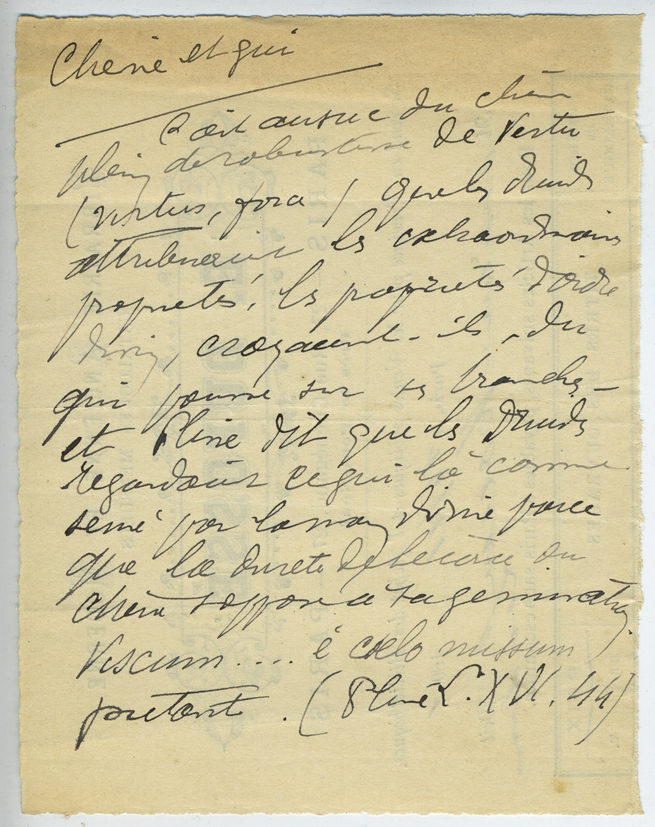 Chêne et gui
C'est au suc du chêne
plein de robustesse de vertu
(virtus, força) que les druides
attribuaient les extraordinaires
propriétés, les propriétés d'ordre
divin, croyaient-ils, du
gui pousse sur ses branches -
et Pline dit que les Druides
regardaient ce gui là comme
semé par la main divine parce
que la dureté de l'écorce du
chêne s'oppose à sa germination.
Viscum .... è cœlo missum
putant. (Pline L. XVI. 44)